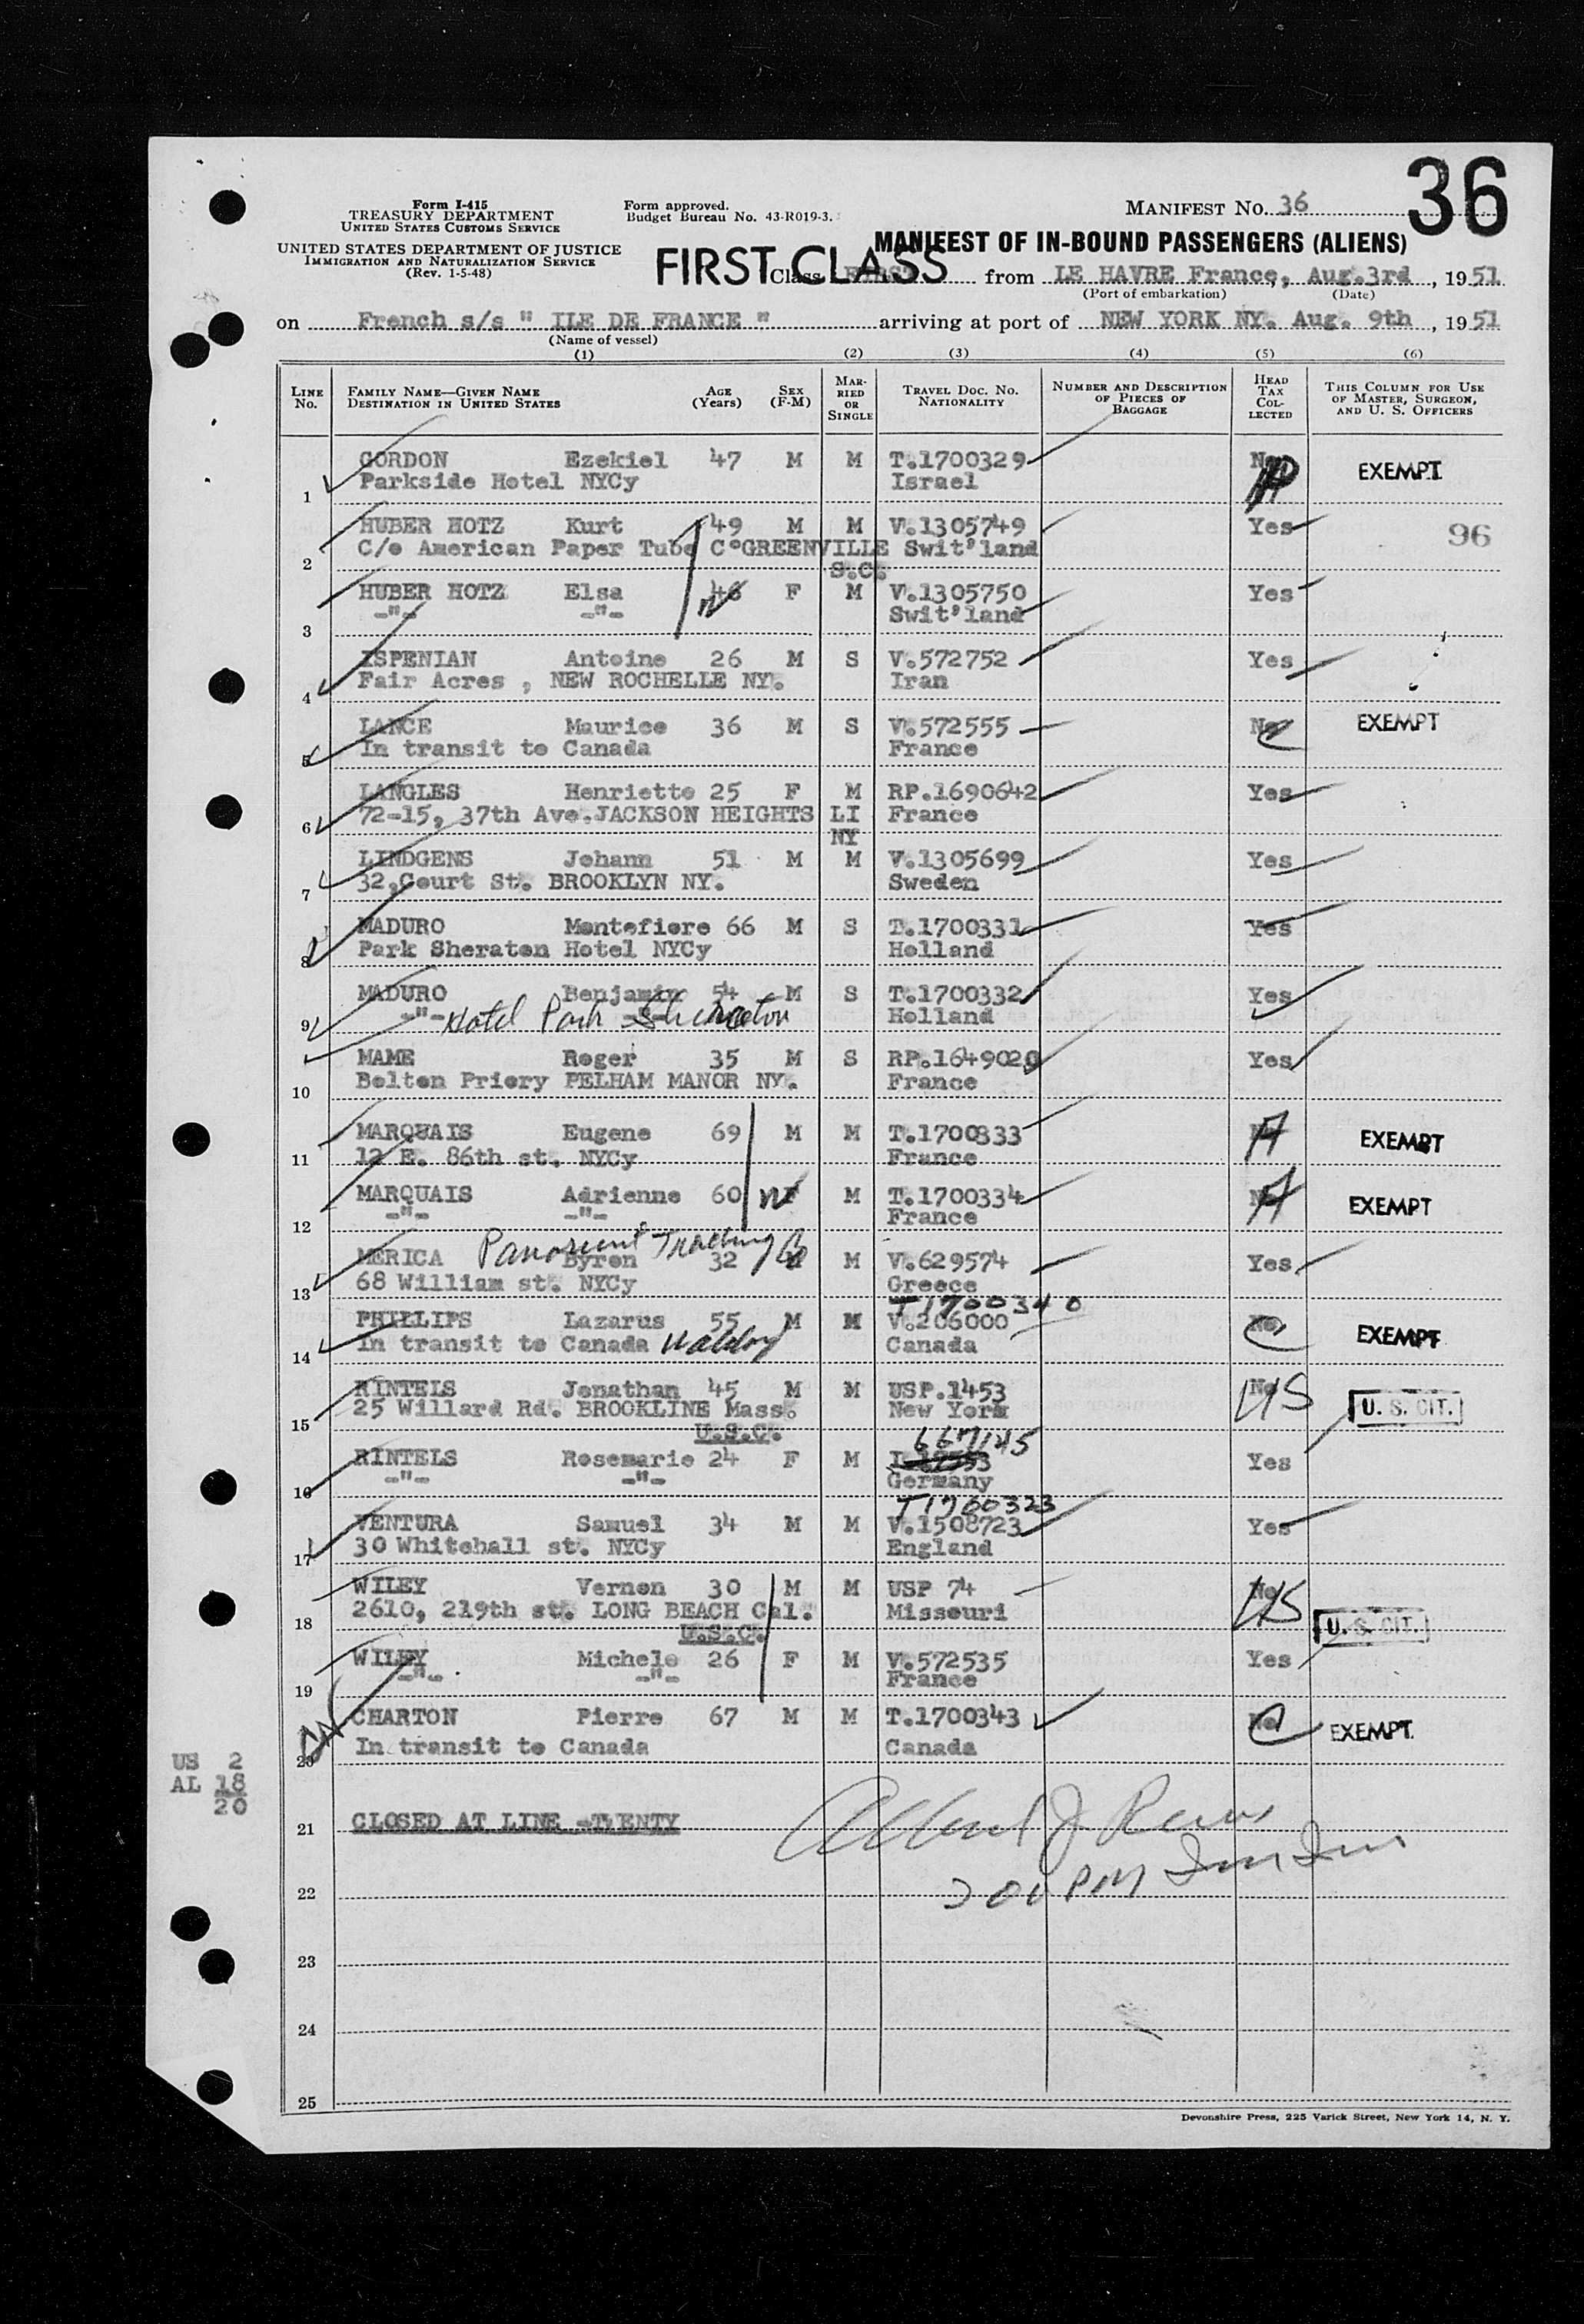 36
Form I-415
TREASURY DEPARTMENT
UNITED STATES CUSTOMS SERVICE
UNITED STATES DEPARTMENT OF JUSTICE
IMMIGRATION AND NATURALIZATION SERVICE
(Rev. 1-5-48)
Form approved.
Budget Bureau No. 43-R019-3.
MANIFEST No. 36
MANIFEST OF IN-BOUND PASSENGERS (ALIENS)
FIRST CLASS
Class FIRST from LE HAVRE France, Aug.3rd, 1951
(Port of embarkation) (Date)
on French s/s " ILE DE FRANCE " arriving at port of NEW YORK NY. Aug. 9th, 1951
(Name of vessel)
(1) (2) (3) (4) (5) (6)
LINE No. FAMILY NAME—GIVEN NAME DESTINATION IN UNITED STATES AGE (Years) SEX (F-M) MARRIED OR SINGLE TRAVEL DOC. NO. NATIONALITY NUMBER AND DESCRIPTION OF PIECES OF BAGGAGE HEAD TAX COLLECTED THIS COLUMN FOR USE OF MASTER, SURGEON, AND U. S. OFFICERS
GORDON Ezekiel 47 M M T.1700329 No EXEMPT
1 Parkside Hotel NYCy Israel
HUBER HOTZ Kurt 49 M M V.1305749 Yes 96
2 C/o American Paper Tube C°GREENVILLE Swit'land
S.C.
HUBER HOTZ Elsa 46 F M V.1305750 Yes
3 -"- -"- Swit'land
ISPENIAN Antoine 26 M S V.572752 Yes
4 Fair Acres , NEW ROCHELLE NY. Iran
LANCE Maurice 36 M S V.572555 No EXEMPT
5 In transit to Canada France
LANGLES Henriette 25 F M RP.1690642 Yes
6 72-15, 37th Ave.JACKSON HEIGHTS LI France
NY
LINDGENS Johann 51 M M V.1305699 Yes
7 32,Court St. BROOKLYN NY. Sweden
MADURO Montefiore 66 M S T.1700331 Yes
8 Park Sheraton Hotel NYCy Holland
MADURO Benjamin 54 M S T.1700332 Yes
9 -"- Hotel Park Sheraton Holland
MAME Roger 35 M S RP.1649029 Yes
10 Bolton Priory PELHAM MANOR NY. France
MARQUAIS Eugene 69 M M T.1700333 A EXEMPT
11 12 E. 86th st. NYCy France
MARQUAIS Adrienne 60 F M T.1700334 A EXEMPT
12 -"- -"- France
Trading Co
MERICA Byron 32 M M V.629574 Yes
13 68 William st. NYCy Greece
T1700340
PHILLIPS Lazarus 55 M M V.206000 No EXEMPT
14 In transit to Canada Canada
RINTELS Jonathan 45 M M USP.1453 No US U. S. CIT.
15 25 Willard Rd. BROOKLINE Mass. New York
U.S.C.
667145
RINTELS Rosemarie 24 F M Yes
16 -"- -"- Germany
T1700323
VENTURA Samuel 34 M M V.1508723 Yes
17 30 Whitehall st. NYCy England
WILEY Vernon 30 M M USP 74 No US
18 2610, 219th st. LONG BEACH Cal. Missouri U. S. CIT.
U.S.C.
WILEY Michele 26 F M V.572535 Yes
19 -"- -"- France
CHARTON Pierre 67 M M T.1700343 No EXEMPT
20 In transit to Canada Canada
US 2
AL 18
20
21 CLOSED AT LINE -TWENTY
22 200 PM
23
24
25
Devonshire Press, 225 Varick Street, New York 14, N. Y.